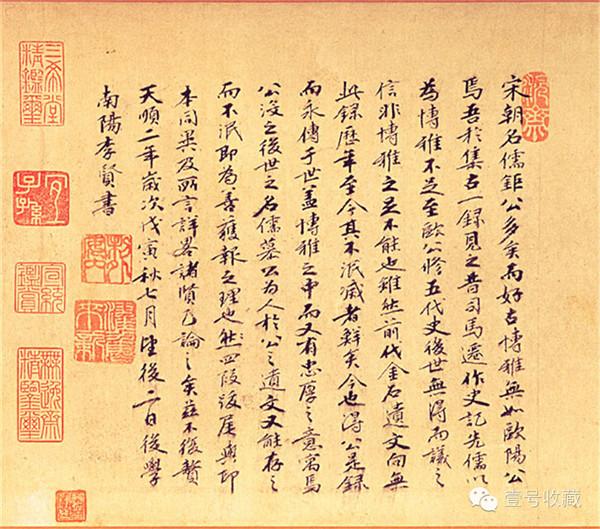 宋朝名儒鉅公多矣而好古博雅無如歐陽公
焉吾於集古一錄見之昔司馬遷作史記先儒以
為博雅不足至歐公修五代史後世無得而議之
信非博雅之至不能也雖然前代金石遺文向無
此錄歷年至今其不泯滅者鮮矣今也得公是錄
而永傳于世蓋博雅之中而又有忠厚之意寓焉
公沒之後世之名儒慕公為人於公之遺文又能存之
而不泯即為善獲報之理也然四段跋尾與印
本同異及所言詳畧諸賢已論之矣茲不復贅
天順二年歲次戊寅秋七月望後二日後學
南陽李賢書
三希堂
精鑑璽
宜
子孫
無逸齋
精鑒璽
壹号收藏